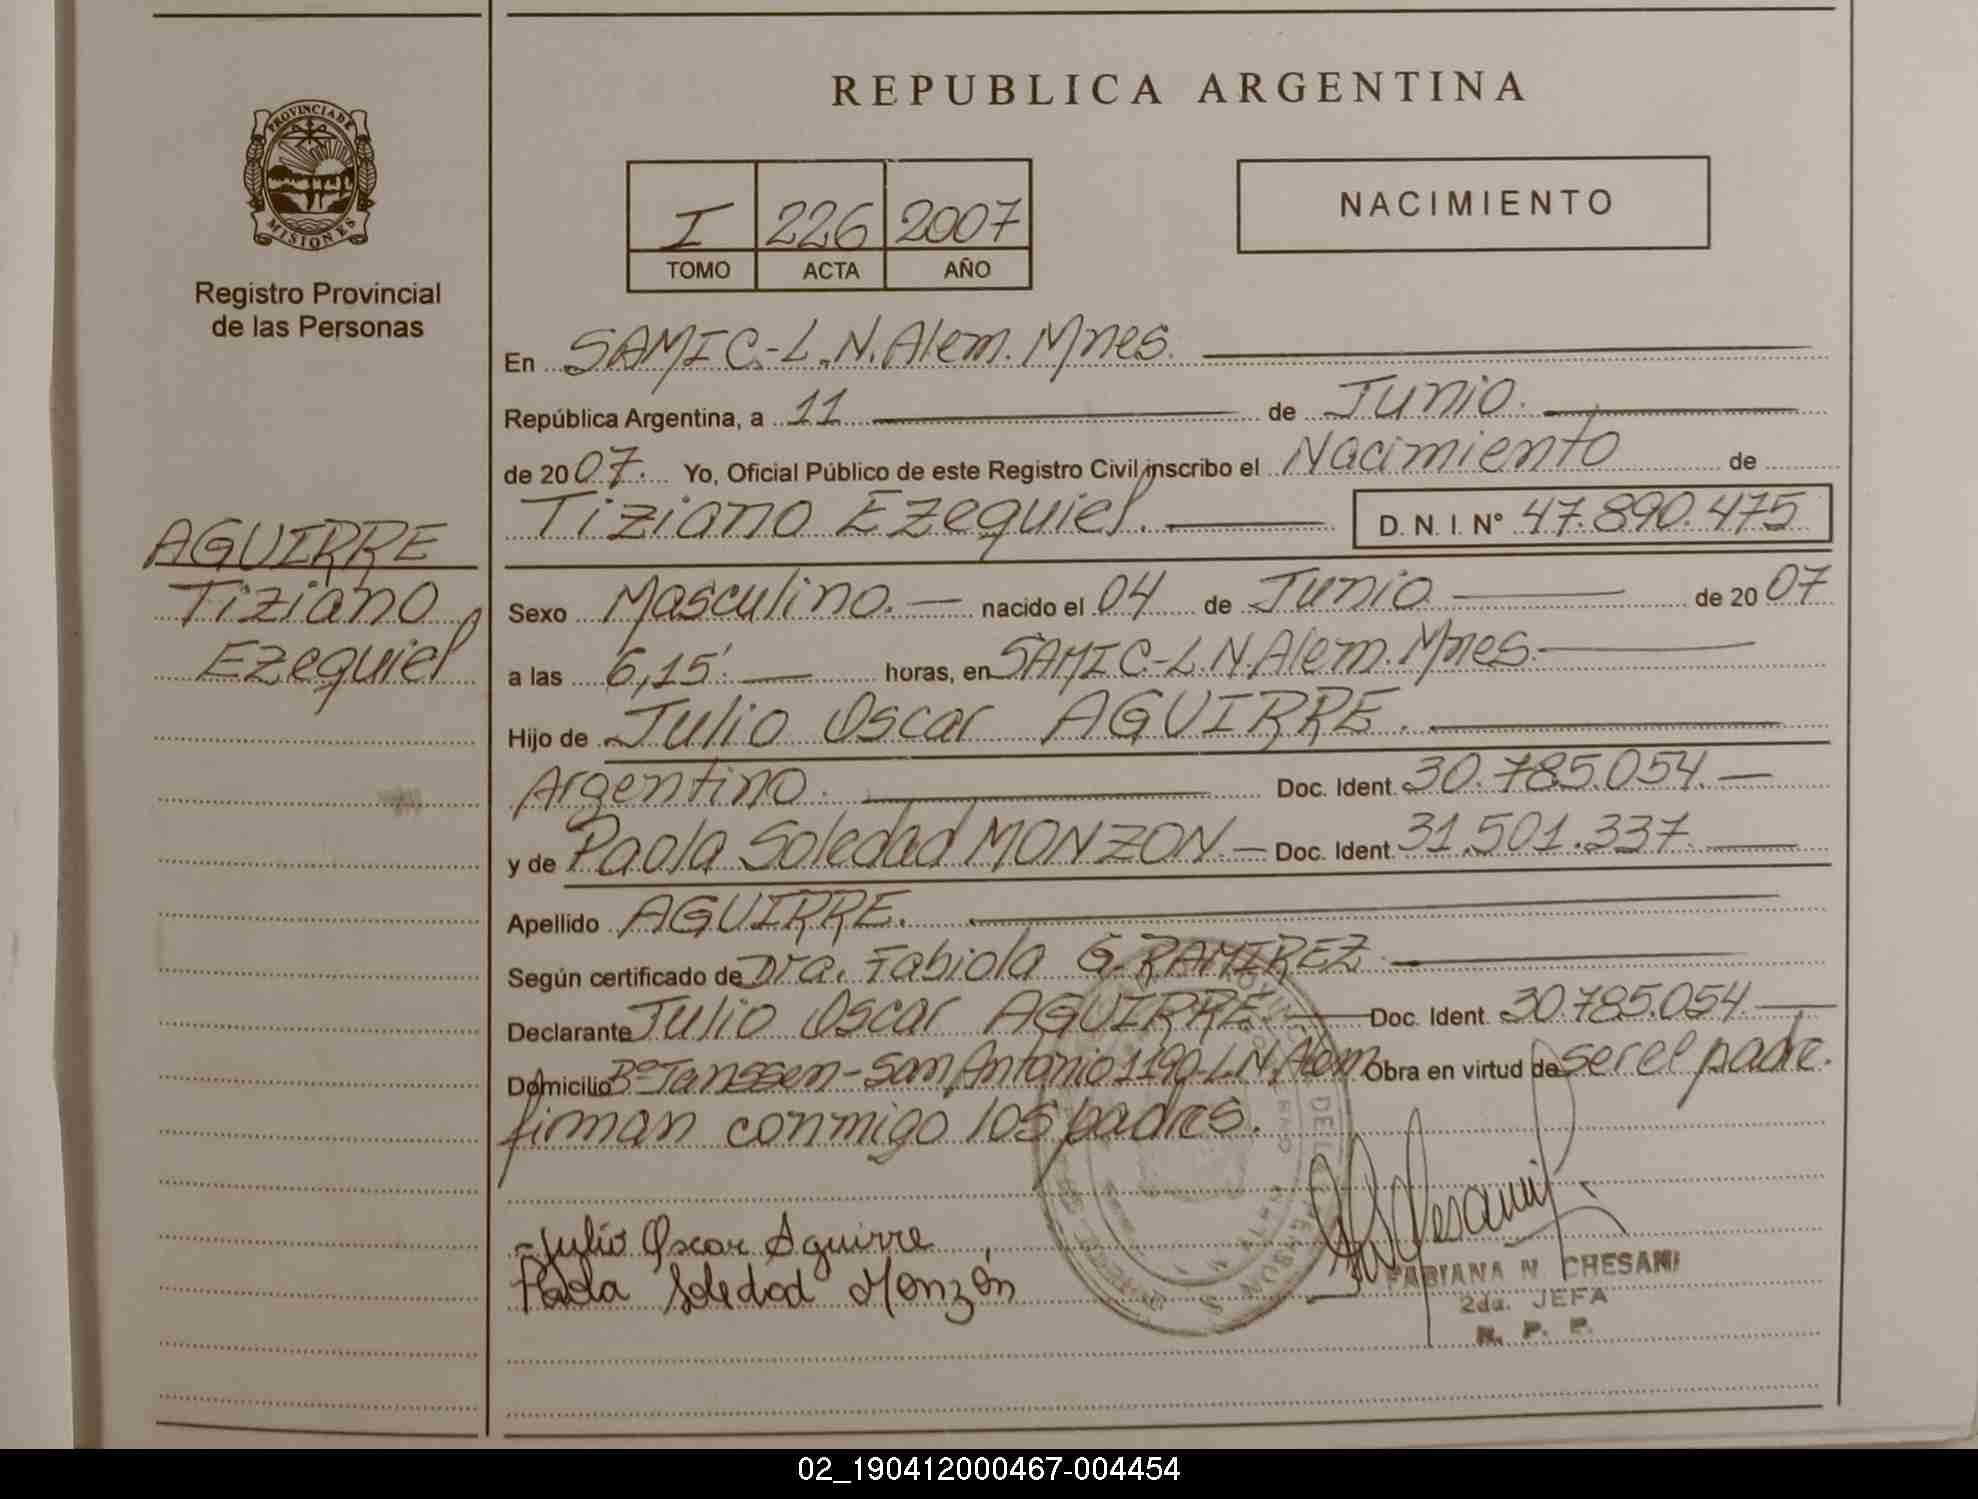 REPUBLICA ARGENTINA
PROVINCIA DE
MISIONES
Registro Provincial
de las Personas
I 226 2007
TOMO ACTA AÑO
NACIMIENTO
En SAMIC.-L.N.Alem. Mnes.
República Argentina, a 11 de Junio.
de 2007. Yo, Oficial Público de este Registro Civil inscribo el Nacimiento de
Tiziano Ezequiel. D. N. I. N° 47.890.475
AGUIRRE
Tiziano
Ezequiel
Sexo Masculino. nacido el 04 de Junio de 2007
a las 6,15'. horas, en SAMIC-L.N.Alem. Mnes.
Hijo de Julio Oscar AGUIRRE.
Argentino. Doc. Ident. 30.785.054.
y de Paola Soledad MONZON. Doc. Ident. 31.501.337.
Apellido AGUIRRE.
Según certificado de Dra. Fabiola G. RAMIREZ
Declarante Julio Oscar AGUIRRE Doc. Ident. 30.785.054.
Domicilio B° Janssen-San Antonio 1190-L.N.Alem Obra en virtud de ser el padre.
firman conmigo los padres.
-Julio Oscar Aguirre
Paola Soledad Monzón
FABIANA N. CHESANI
2da. JEFA
R. P. P.
02_190412000467-004454